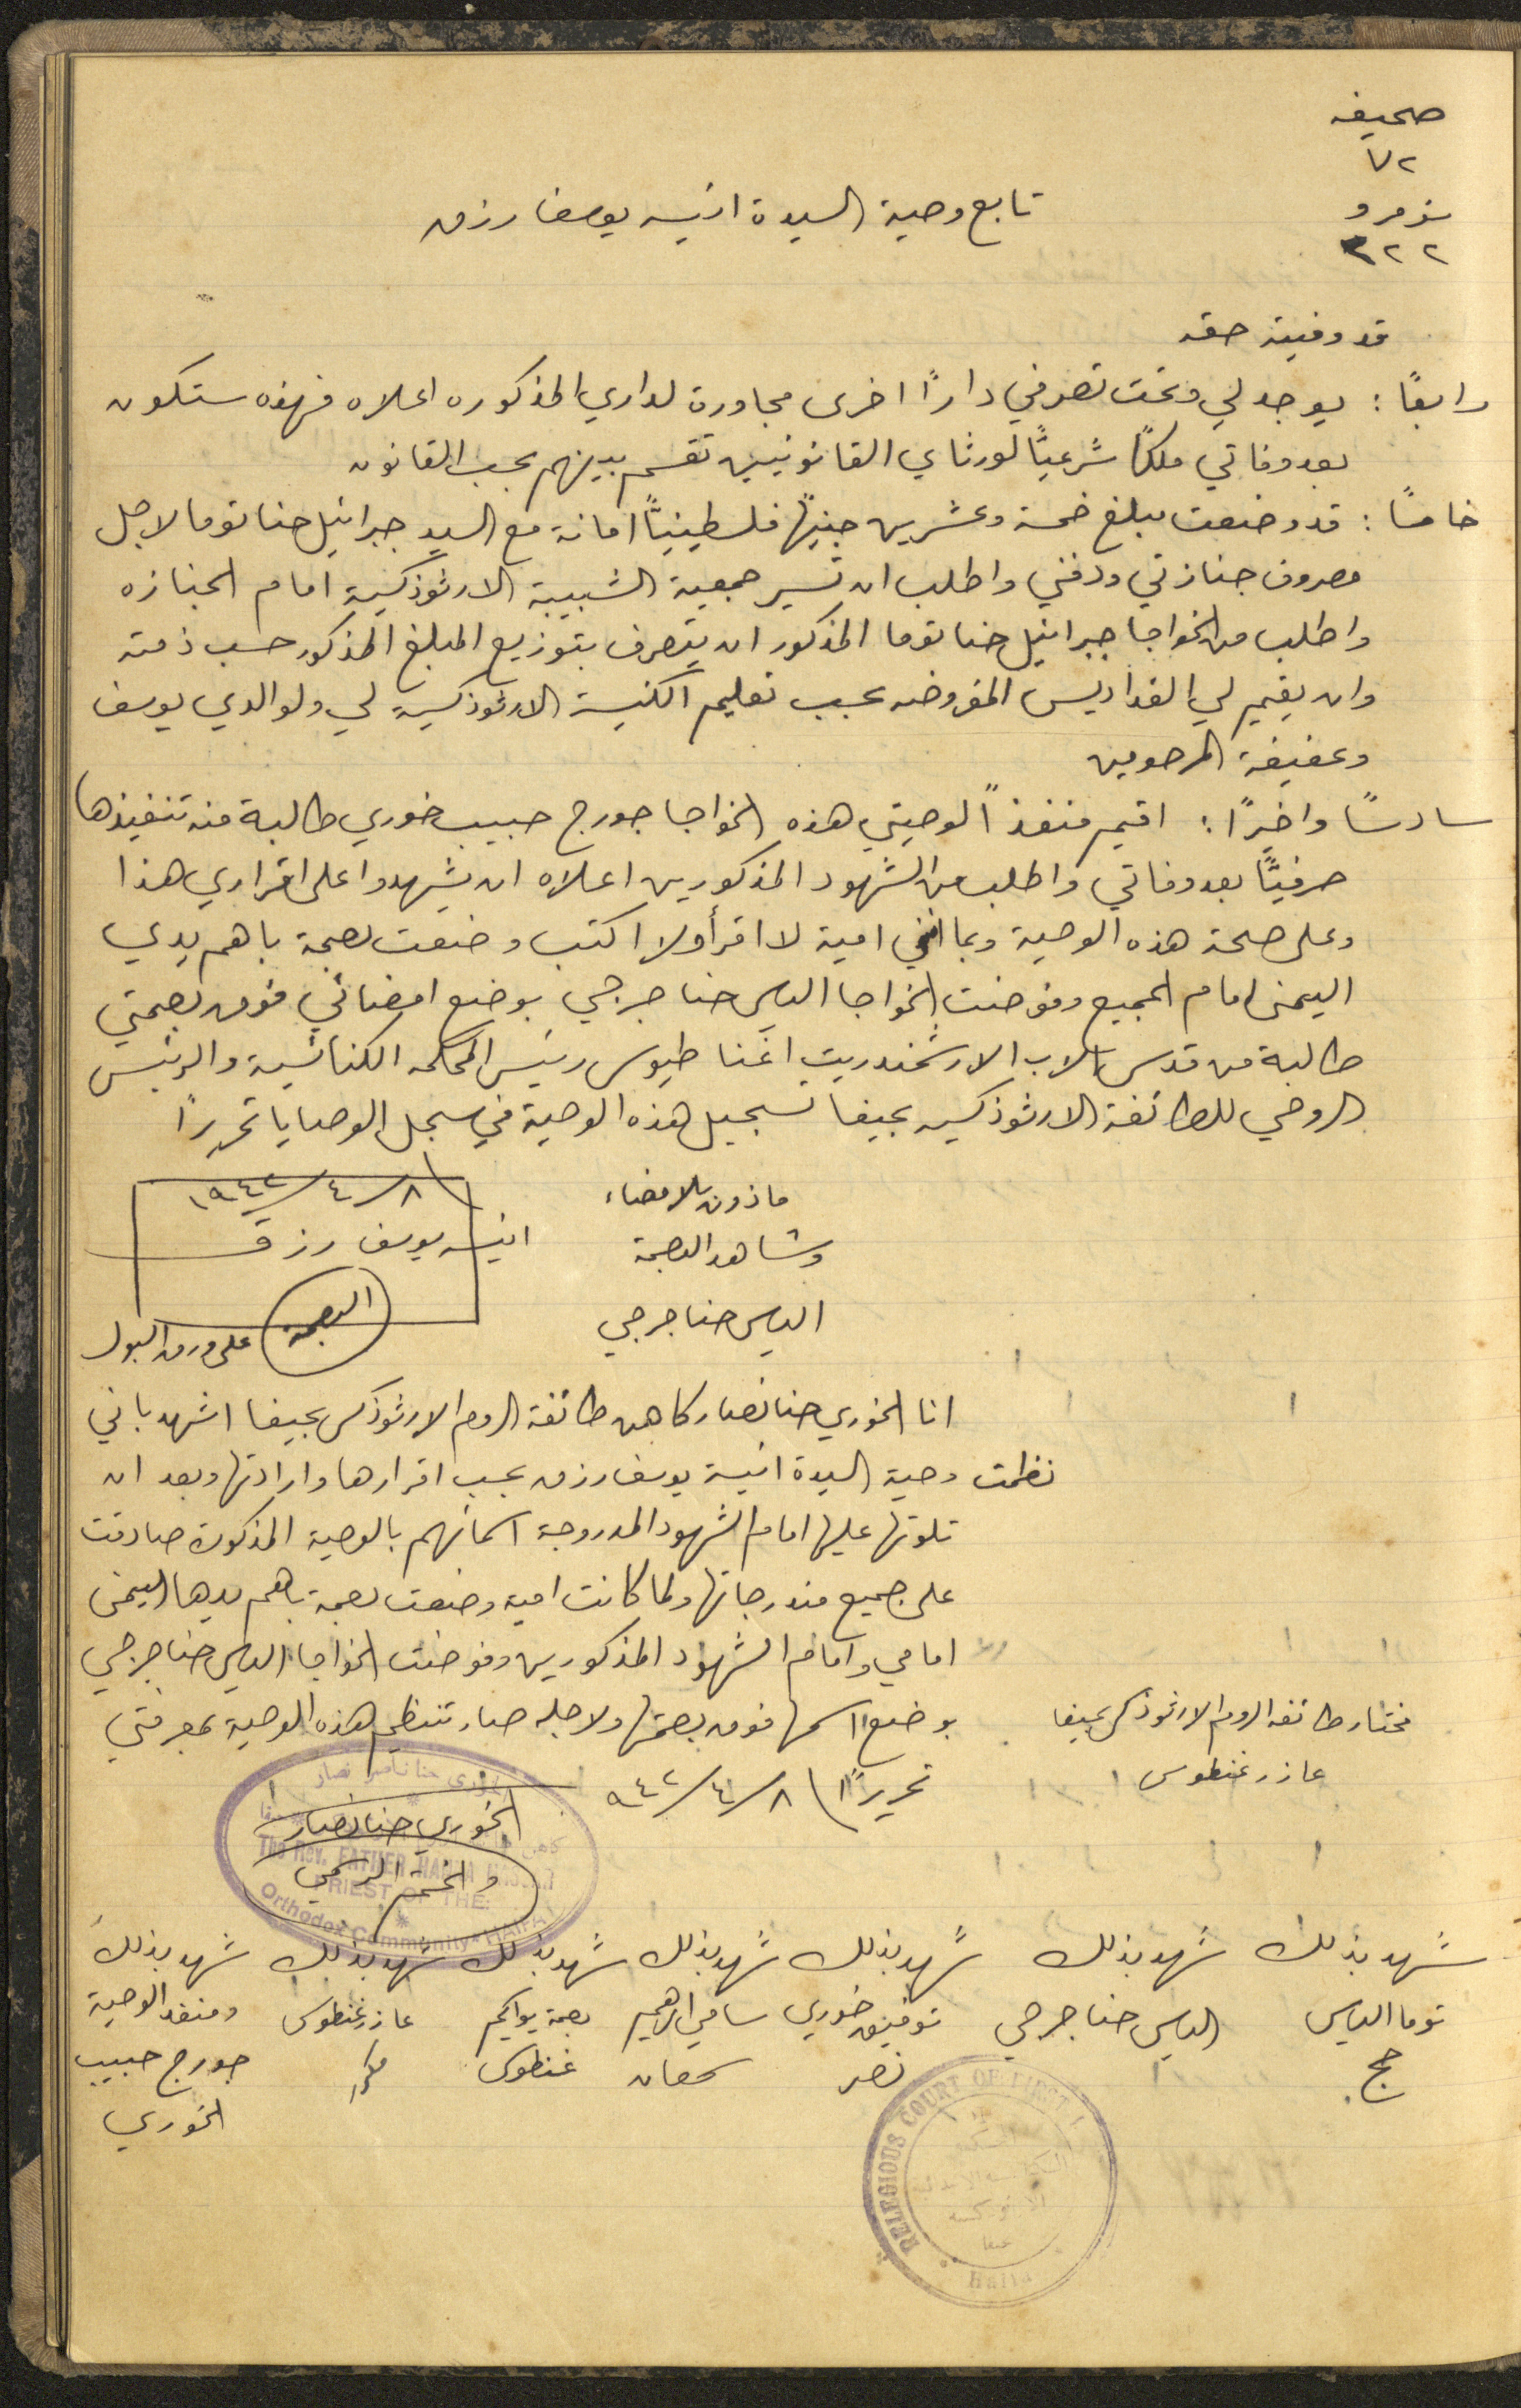 صحيفه
٧٢
نومرو
٣٢٢
تابع وصية السيدة انيسه يوسف رزق
قد وفيته حقه
رابعًا : يوجد لي وتحت تصرفي دارًا اخرى مجاورة لداري المذكوره اعلاه فهذه ستكون
بعد وفاتي ملكًا شرعيًا لورثاي القانونيين تقسم بينهم بحسب القانون
خامسًا : قد وضعت مبلغ خمسة وعشرين جنيهًا فلسطينيًا امانة مع السيد جبرائيل حنا توما لاجل
مصروف جنازتي ودفني واطلب ان تسير جمعية الشبيبة الارثوذكسية امام الجنازه
واطلب من الخواجا جبرائيل حنا توما المذكور ان يتصرف بتوزيع المبلغ المذكور حسب ذمته
وان يقيم لي القداديس المفروضه بحسب تعليم الكنيسة الارثوذكسية لي ولوالدي يوسف
وعفيفة المرحومين
سادسًا واخيرًا : اقيم منفذًا لوصيتي هذه الخواجا جورج حبيب خوري طالبة منه تنفيذها
حرفيًا بعد وفاتي واطلب من الشهود المذكورين اعلاه ان يشهدوا على اقراري هذا
وعلى صحة هذه الوصية وبما انني امية لا اقرأ ولا اكتب وضعت بصمة باهم يدي
اليمنى امام الجميع وفوضت الخواجا الياس حنا جرجي بوضع امضائي فوق بصمتي
طالبة من قدس الاب الارشمندريت اغناطيوس رئيس المحكمه الكنائسية والرئيس
الروحي للطائفة الارثوذكسيه بحيفا تسجيل هذه الوصية في سجل الوصايا تحريرًا
ماذون بالامضاء
وشاهد البصمة
الياس حنا جرجي
٨/٤/١٩٤٢
انيسه يوسف رزق
البصمة
على ورق البول
انا الخوري حنا نصار كاهن طائفة الروم الارثوذكس بحيفا اشهد باني
نظمت وصية السيدة انيسة يوسف رزق بحسب اقرارها وارادتها وبعد ان
تلوتها عليها امام الشهود المدروجة اسمائهم بالوصية المذكورة صادقت
على جميع مندرجاتها ولما كانت امية وضعت بصمة باهم يدها اليمنى
امامي وامام الشهود المذكورين وفوضت الخواجا الياس حنا جرجي
بوضع اسمها فوق بصمتها ولاجله صار تنظيم هذه الوصية بمعرفتي
تحريرًا ٨/٤/٩٤٢
مختار طائفة الروم الارثوذكس بحيفا
عازر غنطوس
الخوري حنا نصار
والختم الرسمي
THE REV. FATHER HANNA
PRIEST OF THE
Orthodox Community HAIFA
شهد بذلك شهد بذلك شهد بذلك شهد بذلك شهد بذلك شهد بذلك شهد بذلك
توما الياس
الياس حنا جرجي
توفيق خوري
نصر
سامي ابراهيم
سمعان
بصمة يواكيم
غنطوس
عازر غنطوس
ومنفذ الوصية
جورج حبيب
الخوري
RELEGIOUS COURT OF FIRST I
Haifa